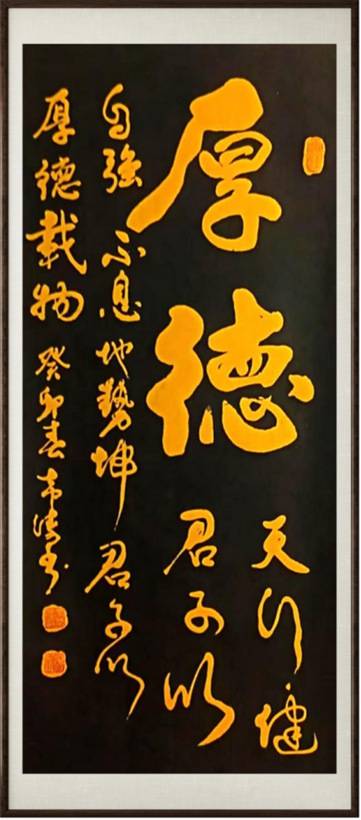 厚德
天行健
君子以
自強不息地勢坤君子以
厚德載物癸卯春